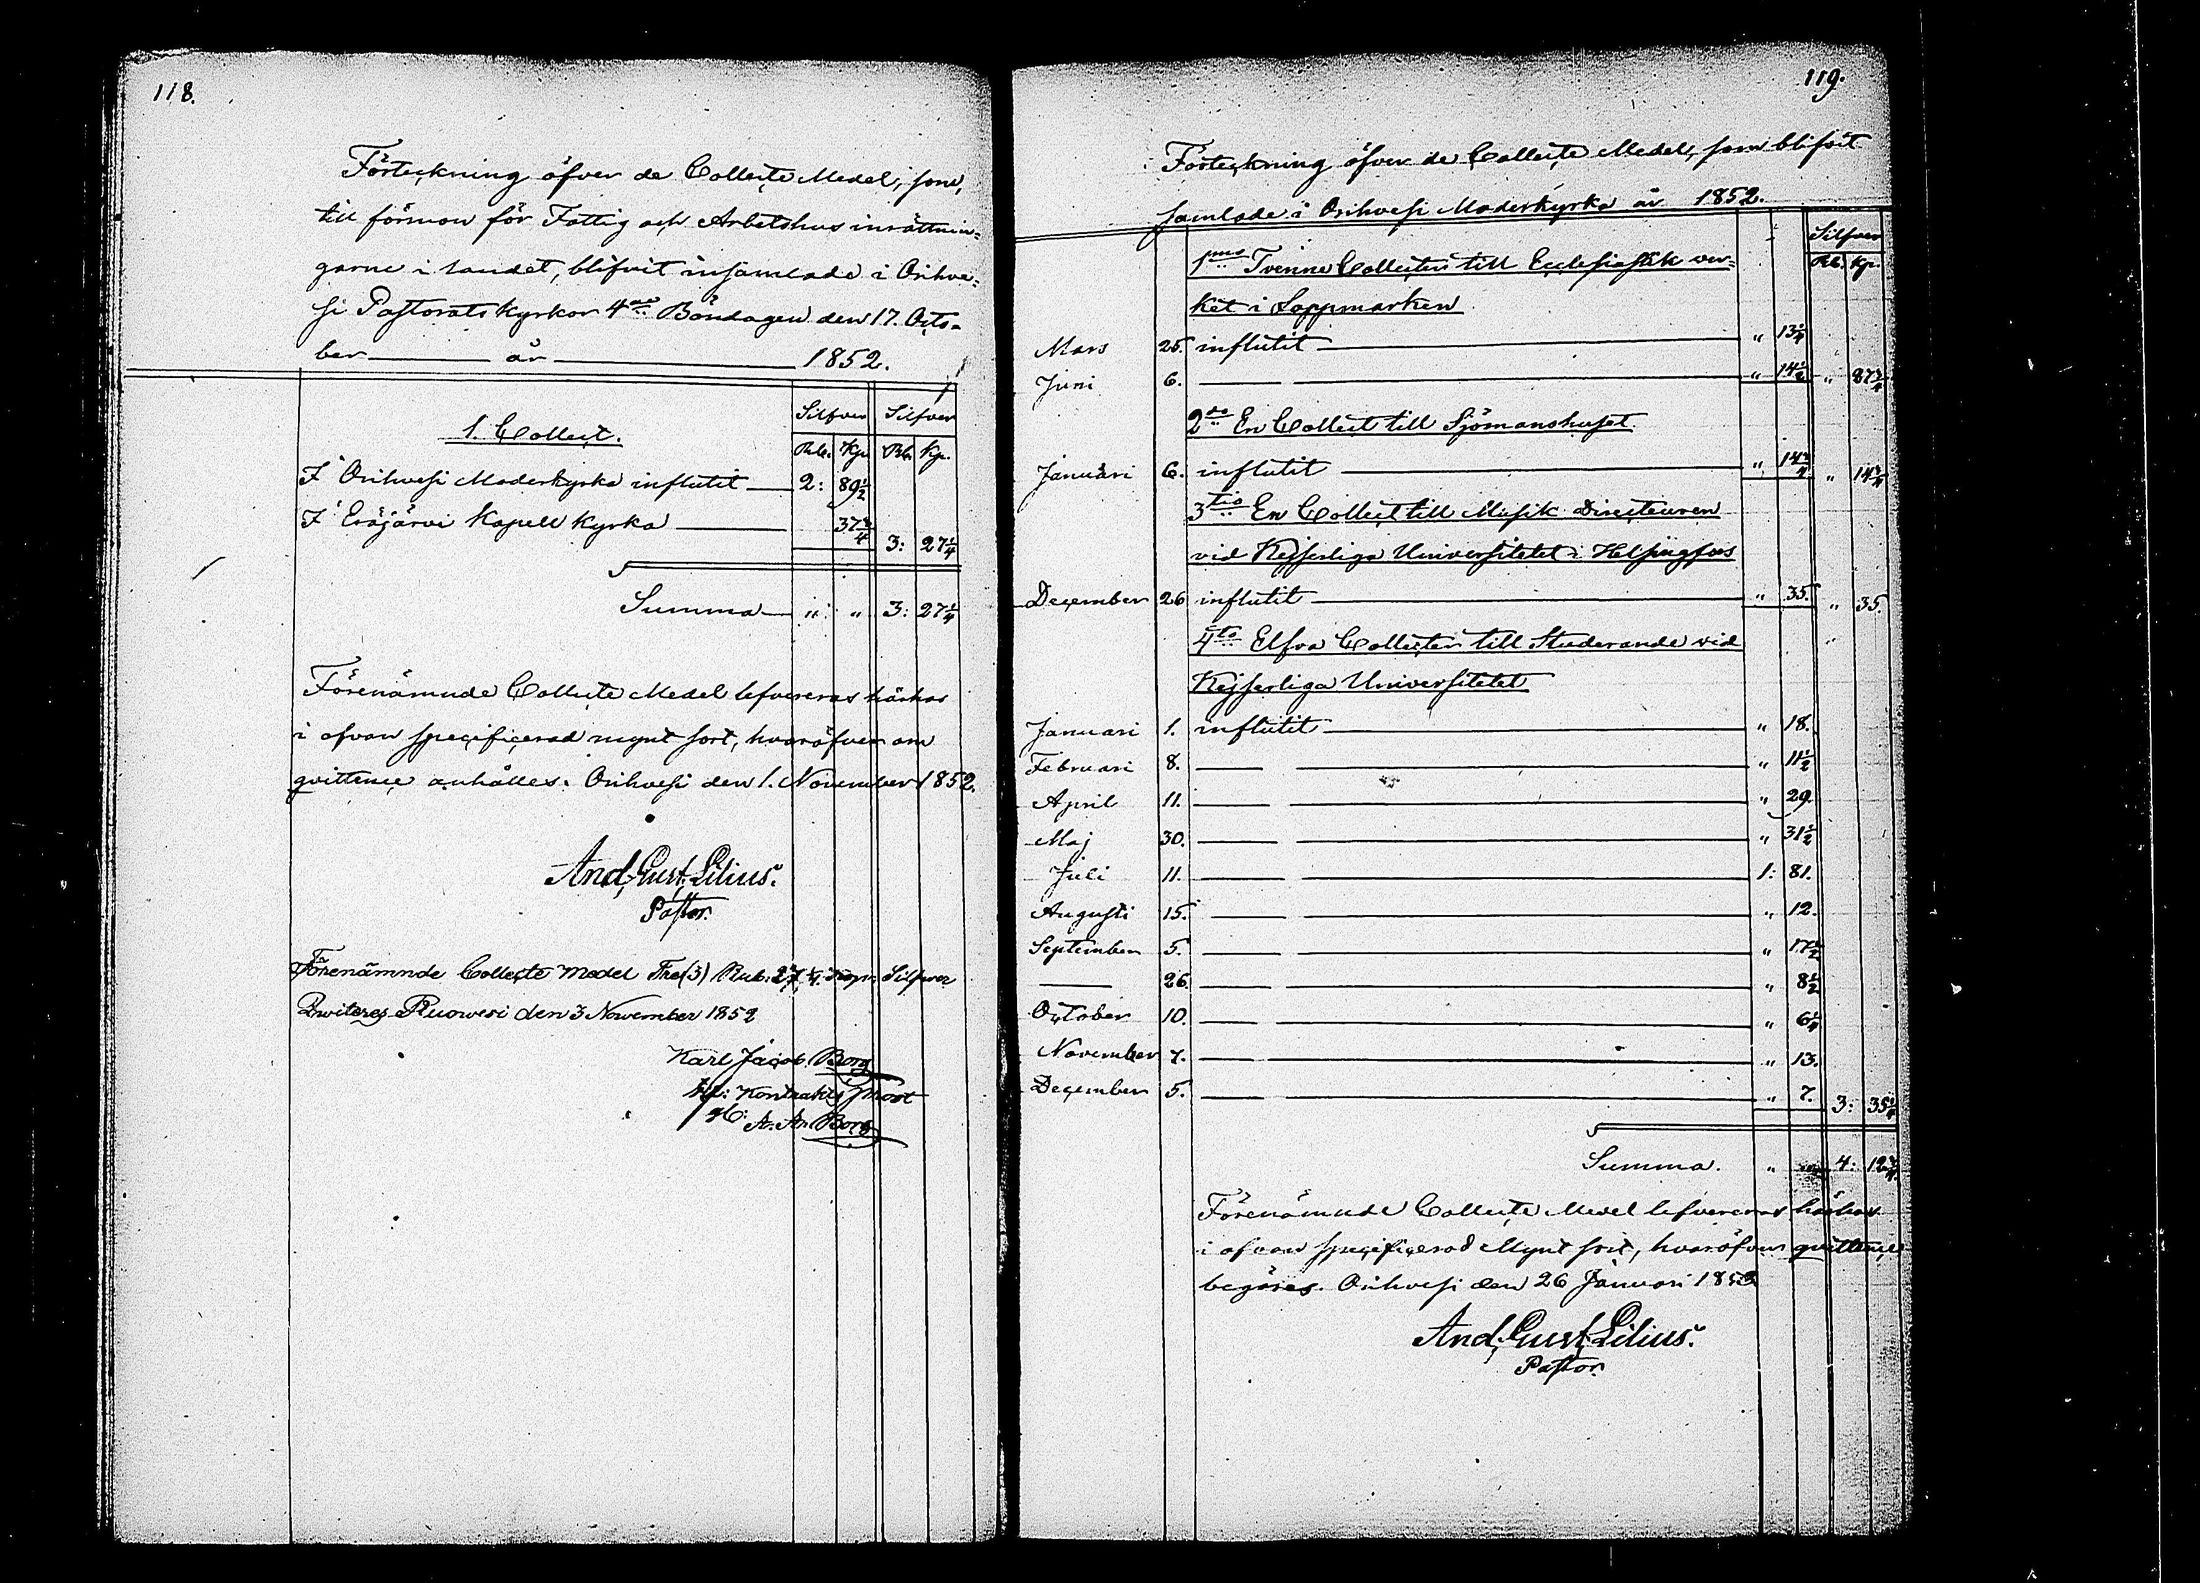 118.
Förteckning öfver de Collecte Medel, som,
till förmon för Fattig och Arbetshus inrättnin=
garne i landet, blifvit insamlade i Orihve=
si Pastorats Kyrkor 4de Böndagen den 17. Octo-
ber — år — 1852.
Silfver Silfver
1. Collect.
Rub. Kp. Rub. Kp.
I Orihvesi Moderkyrka influtit — 2: 89½
I Eräjärvi Kapell Kyrka — 37¾ 3: 27¼
Summa — " " 3: 27¼
Förenämnde Collecte Medel lefvereras härhos
i ofvan specificerad mynt sort, hvaröfver om
qvittence anhålles. Orihvesi den 1. November 1852.
And. Gust. Lilius.
Pastor.
Förenämnde Collecte Medel Tre (3) Rub. 27¼ Kop. Silfwer
Qwiteras Ruowesi den 3 November 1852
Karl Jacob Borg
Kontrakts Prost
A. An. Borg
119.
Förteckning öfver de Collecte Medel, som blifvit
samlade i Orihvesi Moderkyrka år 1852.
Silfver
Rb. Kp.
1mo Tvenne Collecter till Ecclesiastik ver=
ket i Lappmarken
Mars 25. influtit — " 13¼
Juni 6. — — " 14½ " 27¾
2do En Collect till Sjömanshuset
Januari 6. influtit — " 14¾ " 14¾
3tio En Collect till Musik Directeuren
vid Kejserliga Universitetet i Helsingfors
December 26 influtit — " 35. " 35.
4to Elfva Collecter till Studerande vid
Kejserliga Universitetet
Januari 1. influtit — " 18.
Februari 8. — — " 11½
April 11. — — " 29.
Maj 30. — — " 31½
Juli 11. — — 1: 81.
Augusti 15. — — " 12.
September 5. — — " 17½
— 26. — — " 8½
October 10. — — " 6¼
November 7. — — " 13.
December 5. — — " 7. 3: 35¼
Summa. " 4: 12¾
Förenämnde Collecte Medel lefvereras härhos
i ofvan specificerad Mynt sort, hvaröfver qvittence
begäres. Orihvesi den 26 Januari
And. Gust. Lilius.
Pastor.